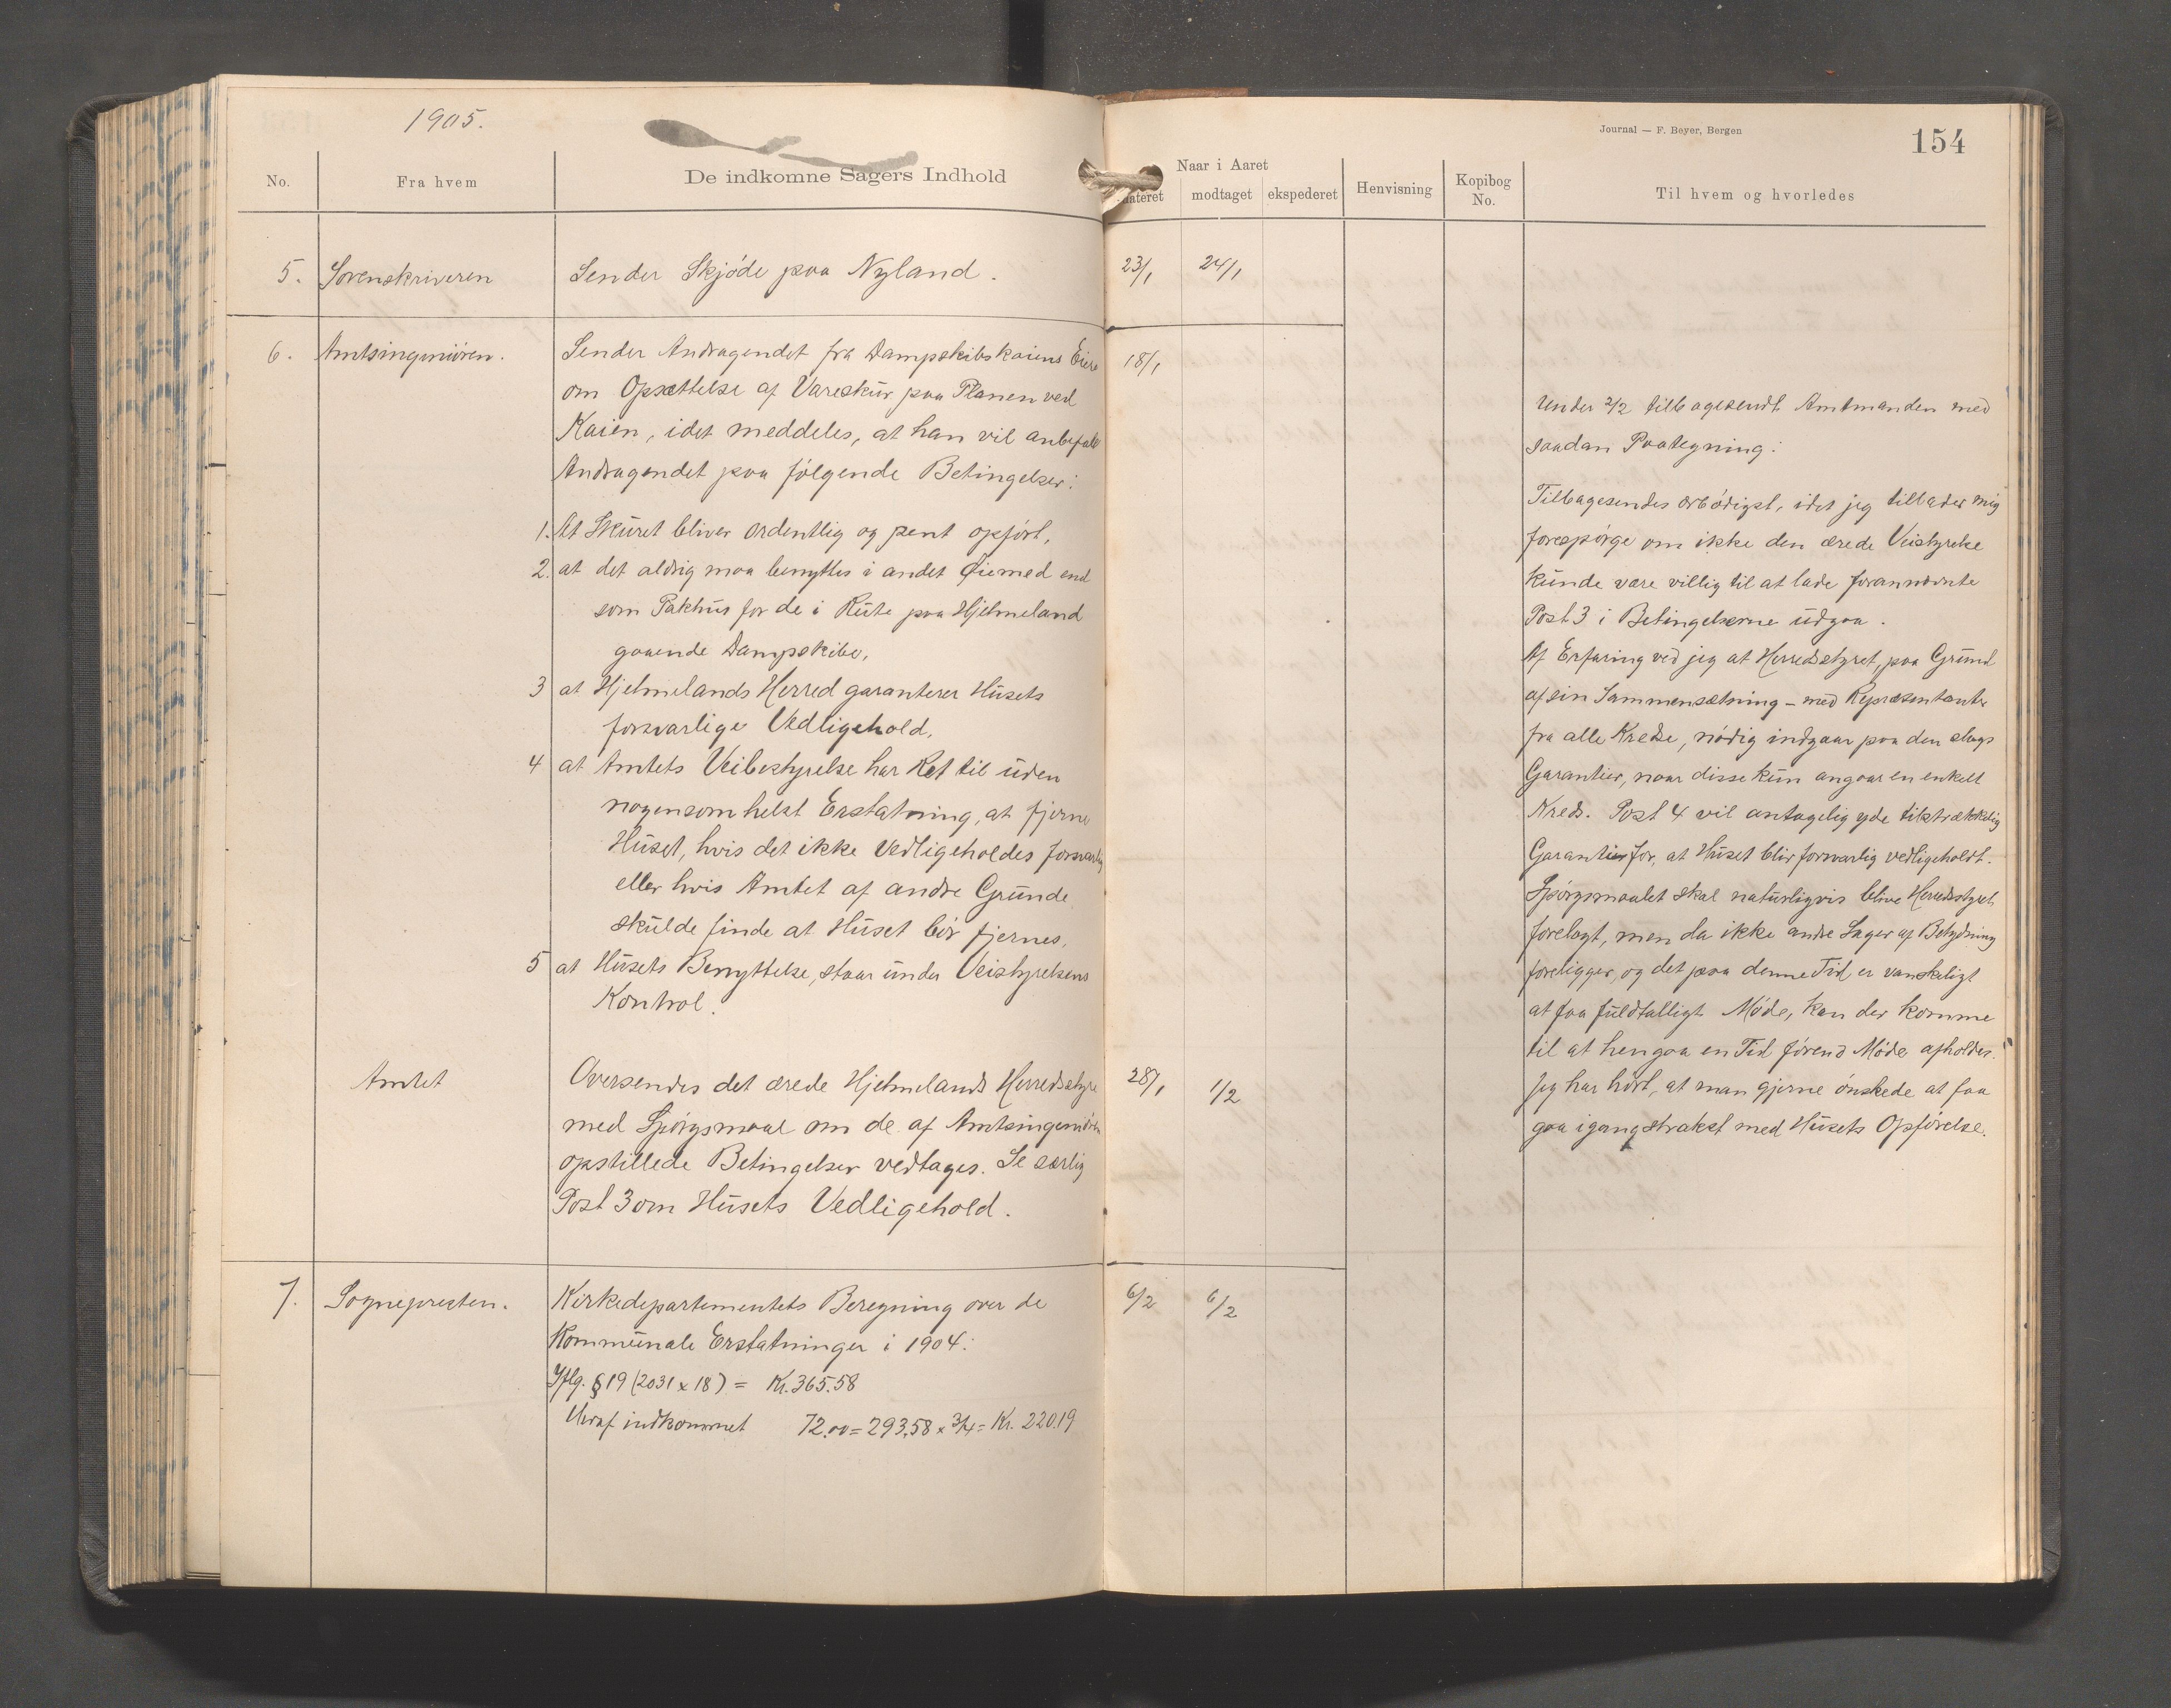 1905.
No.
Fra hvem
De indkomne Sagers Indhold
5. Sorenskriveren Sender Skjöde paa Nyland.
6. Amtsingeniören. Sender Andragendet fra Dampskibskaiens Eiere
om Opsættelse af Vareskur paa Planen ved
Kaien, idet meddeles, at han vil anbefale
Andragendet paa fölgende Betingelser:
1. At Skuret bliver ordentlig og pent opfört,
2. at det aldrig maa benyttes i andet Öiemed end
som Pakhus for de i Rute paa Hjelmeland
gaaende Dampskibe,
3 at Hjelmelands Herred garanterer Husets
forsvarlige Vedligehold,
4 at Amtets Veibestyrelse har Ret til uden
nogensomhelst Erstatning, at fjerne
Huset, hvis det ikke Vedligeholdes forsvarlig
eller hvis Amtet af andre Grunde
skulde finde at Huset bör fjernes,
5 at Husets Benyttelse, staar under Veistyrelsens
Kontrol.
Amtet Oversendes det ærede Hjelmelands Herredsstyre
med Spörgsmaal om de af Amtsingeniören
opstillede Betingelser vedtages. Se særlig
Post 3 om Husets Vedligehold.
7. Sognepresten. Kirkedepartementets Beregning over de
Kommunale Erstatninger i 1904:
Iflg. § 19 (2031 x 18) = Kr. 365.58
Heraf indkommet 72.00 = 293.58 x 3/4 = Kr. 220.19
Journal — F. Beyer, Bergen
154
Naar i Aaret
dateret
modtaget
ekspederet
Henvisning
Kopibog
No.
Til hvem og hvorledes
23/1 24/1
18/1
28/1 1/2
6/2 6/2
Under 2/2 tilbagesendt Amtmanden med
saadan Paategning:
Tilbagesendes ærbödigst, idet jeg tillader mig
forespörge om ikke den ærede Veistyrelse
kunde være villig til at lade forannævnte
Post 3 i Betingelserne udgaa.
Af Erfaring ved jeg at Herredsstyret, paa Grund
af sin Sammensætning – med Repræsentanter
fra alle Kredse, nödig indgaar paa den slags
Garantier, naar disse kun angaar en enkelt
Kreds. Post 4 vil antagelig yde tilstrækkelig
Garantier for, at Huset blir forsvarlig vedligeholdt.
Spörgsmaalet skal naturligvis blive Herredsstyret
forelagt, men da ikke andre Sager af Betydning
foreligger, og det paa denne Tid er vanskeligt
at faa fuldtalligt Möde, kan der komme
til at hengaa en Tid förend Möde afholdes.
Jeg har hört, at man gjerne önskede at faa
gaa igang strakst med Husets Opförelse.